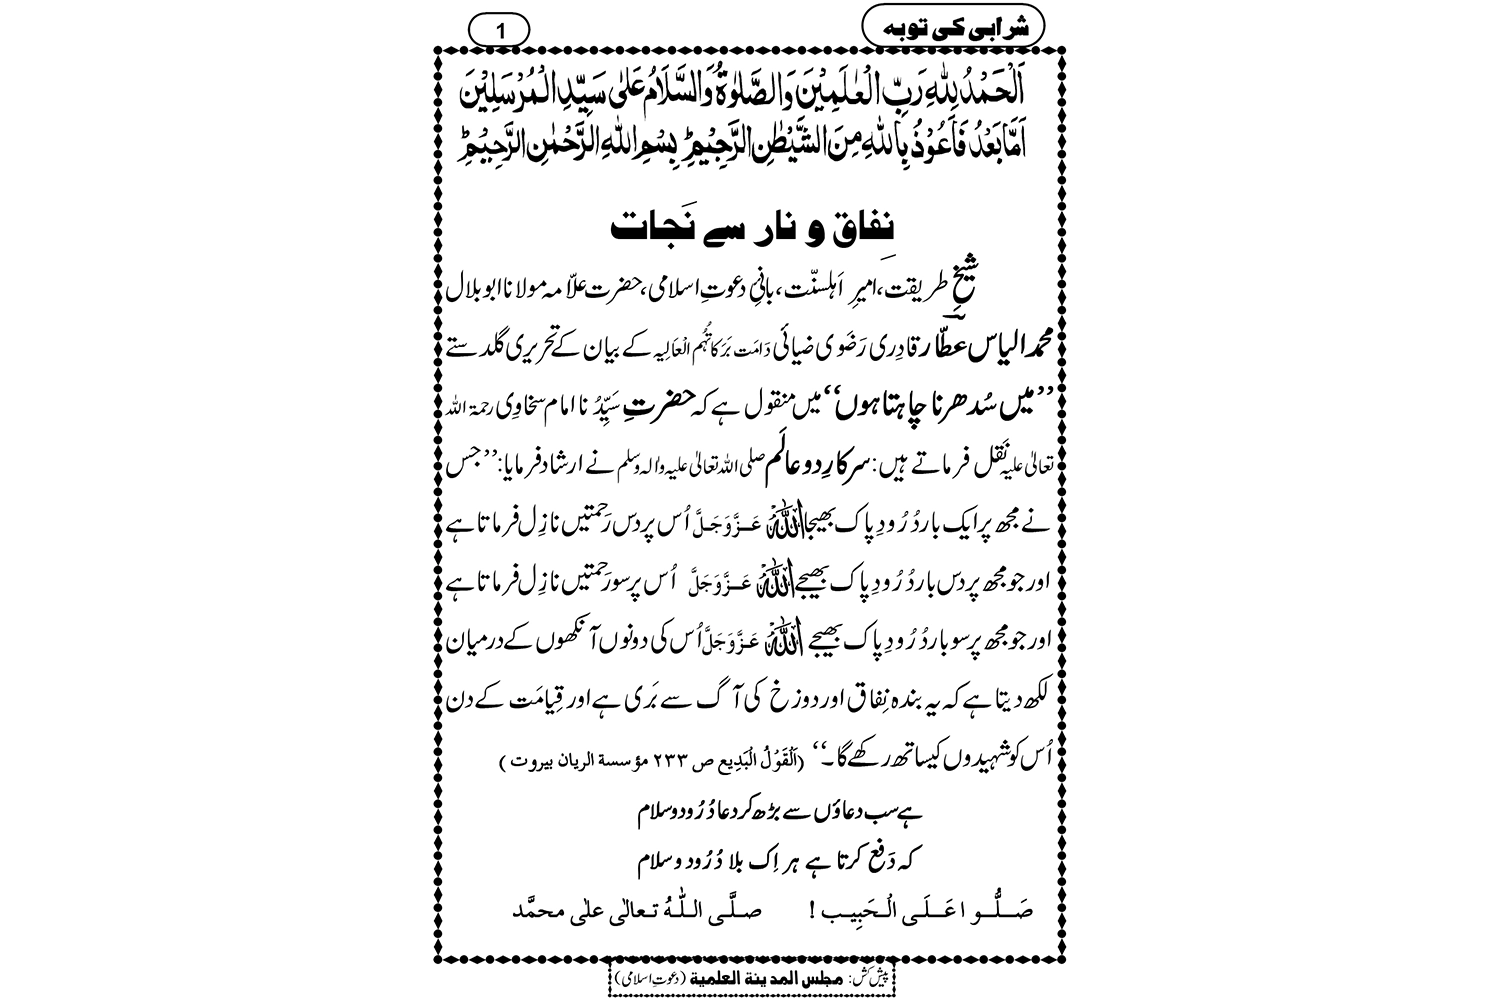 شرابی کی توبہ
1
اَلْحَمْدُ لِلّٰهِ رَبِّ الْعٰلَمِیْنَ وَالصَّلٰوةُ وَالسَّلَامُ عَلٰی سَیِّدِ الْمُرْسَلِیْنَ
اَمَّا بَعْدُ فَاَعُوْذُ بِاللّٰهِ مِنَ الشَّیْطٰنِ الرَّجِیْمِؕ بِسْمِ اللّٰهِ الرَّحْمٰنِ الرَّحِیْمِؕ
نِفاق و نار سے نَجات
شیخِ طریقت، امیرِ اَہلسنّت، بانیِ دعوتِ اسلامی، حضرت علّامہ مولانا ابو بلال
محمد الیاس عطّار قادِری رَضَوی ضیائی دَامَت بَرَکاتُہُم الْعَالِیہ کے بیان کے تحریری گلدستے
’’میں سُدھرنا چاہتا ہوں‘‘ میں منقول ہے کہ حضرتِ سَیِّدُنا امام سخاوِی رحمۃ اللہ
تعالیٰ علیہ نَقْل فرماتے ہیں: سرکارِ دو عالَم صلی اللہ تعالیٰ علیہ واٰلہ وسلم نے ارشاد فرمایا: ’’جس
نے مجھ پر ایک بار دُرُودِ پاک بھیجا اللہ عَزَّوَجَلَّ اُس پر دس رَحمتیں نازِل فرماتا ہے
اور جو مجھ پر دس بار دُرُودِ پاک بھیجے اللہ عَزَّوَجَلَّ اُس پر سو رَحمتیں نازِل فرماتا ہے
اور جو مجھ پر سو بار دُرُودِ پاک بھیجے اللہ عَزَّوَجَلَّ اُس کی دونوں آنکھوں کے درمیان
لکھ دیتا ہے کہ یہ بندہ نِفاق اور دوزخ کی آگ سے بَری ہے اور قِیامَت کے دن
اُس کو شہیدوں کیساتھ رکھے گا۔‘‘ (اَلْقَوْلُ الْبَدِیع ص ۲۳۳ مؤسسة الریان بیروت)
ہے سب دعاؤں سے بڑھ کر دعا دُرُود و سلام
کہ دَفع کرتا ہے ہر اِک بلا دُرُود و سلام
صَلُّوا عَلَی الْحَبِیب! صلَّی اللّٰہُ تعالٰی علٰی محمَّد
پیش کش: مجلس المدینۃ العلمیۃ (دعوتِ اسلامی)